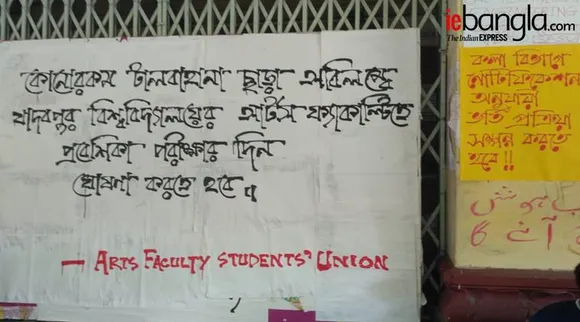 কোনোরকম টালবাহানা ছাড়া অবিলম্বে
যাদবপুর বিশ্ববিদ্যালয়ের আর্টস ফ্যাকাল্টিতে
প্রবেশিকা পরীক্ষার দিন
ঘোষনা করতে হবে।
— ARTS FACULTY STUDENTS' UNION
iebangla.com
The Indian EXPRESS
কলা বিভাগে
নোটিফিকেশন
অনুযায়ী
ভর্তি প্রক্রিয়া
সম্পন্ন করতে
হবে!!